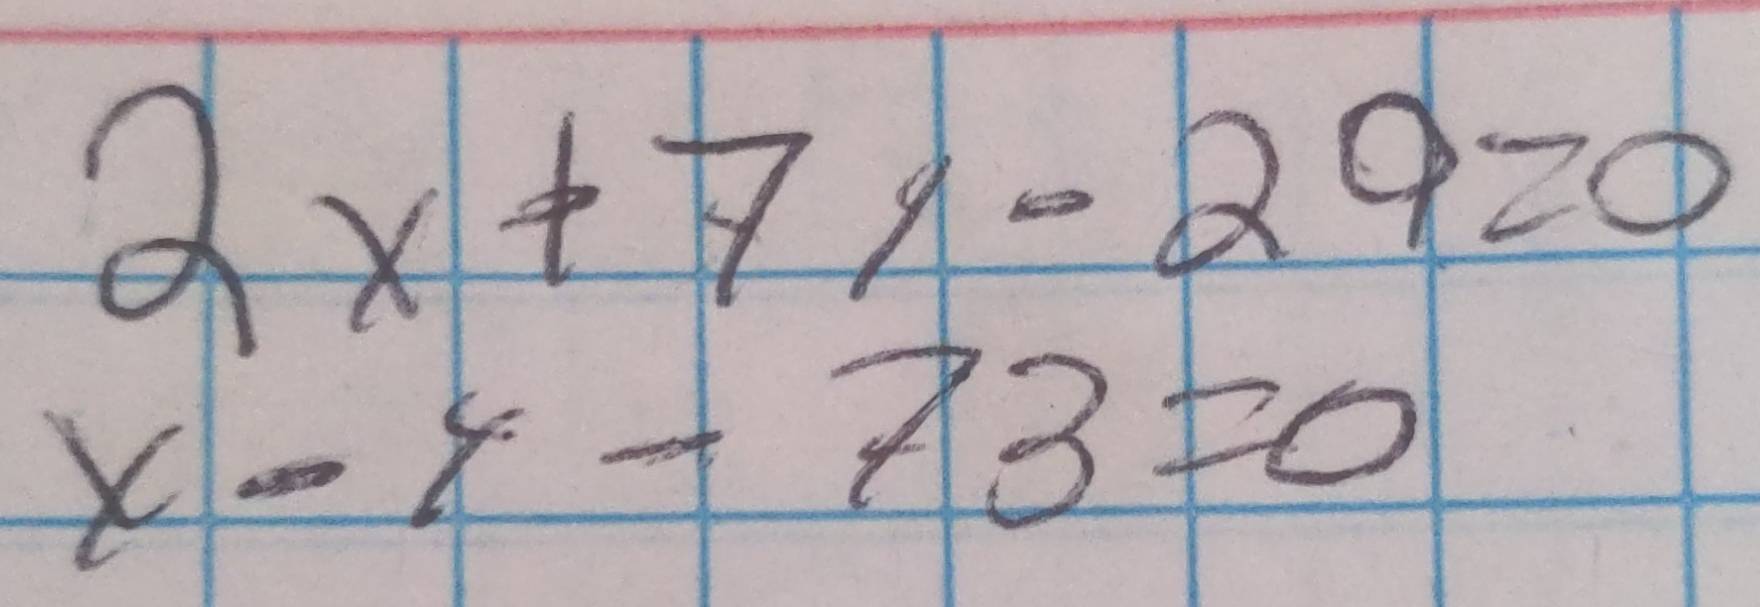 2x+7y-29=0
x-y-73=0